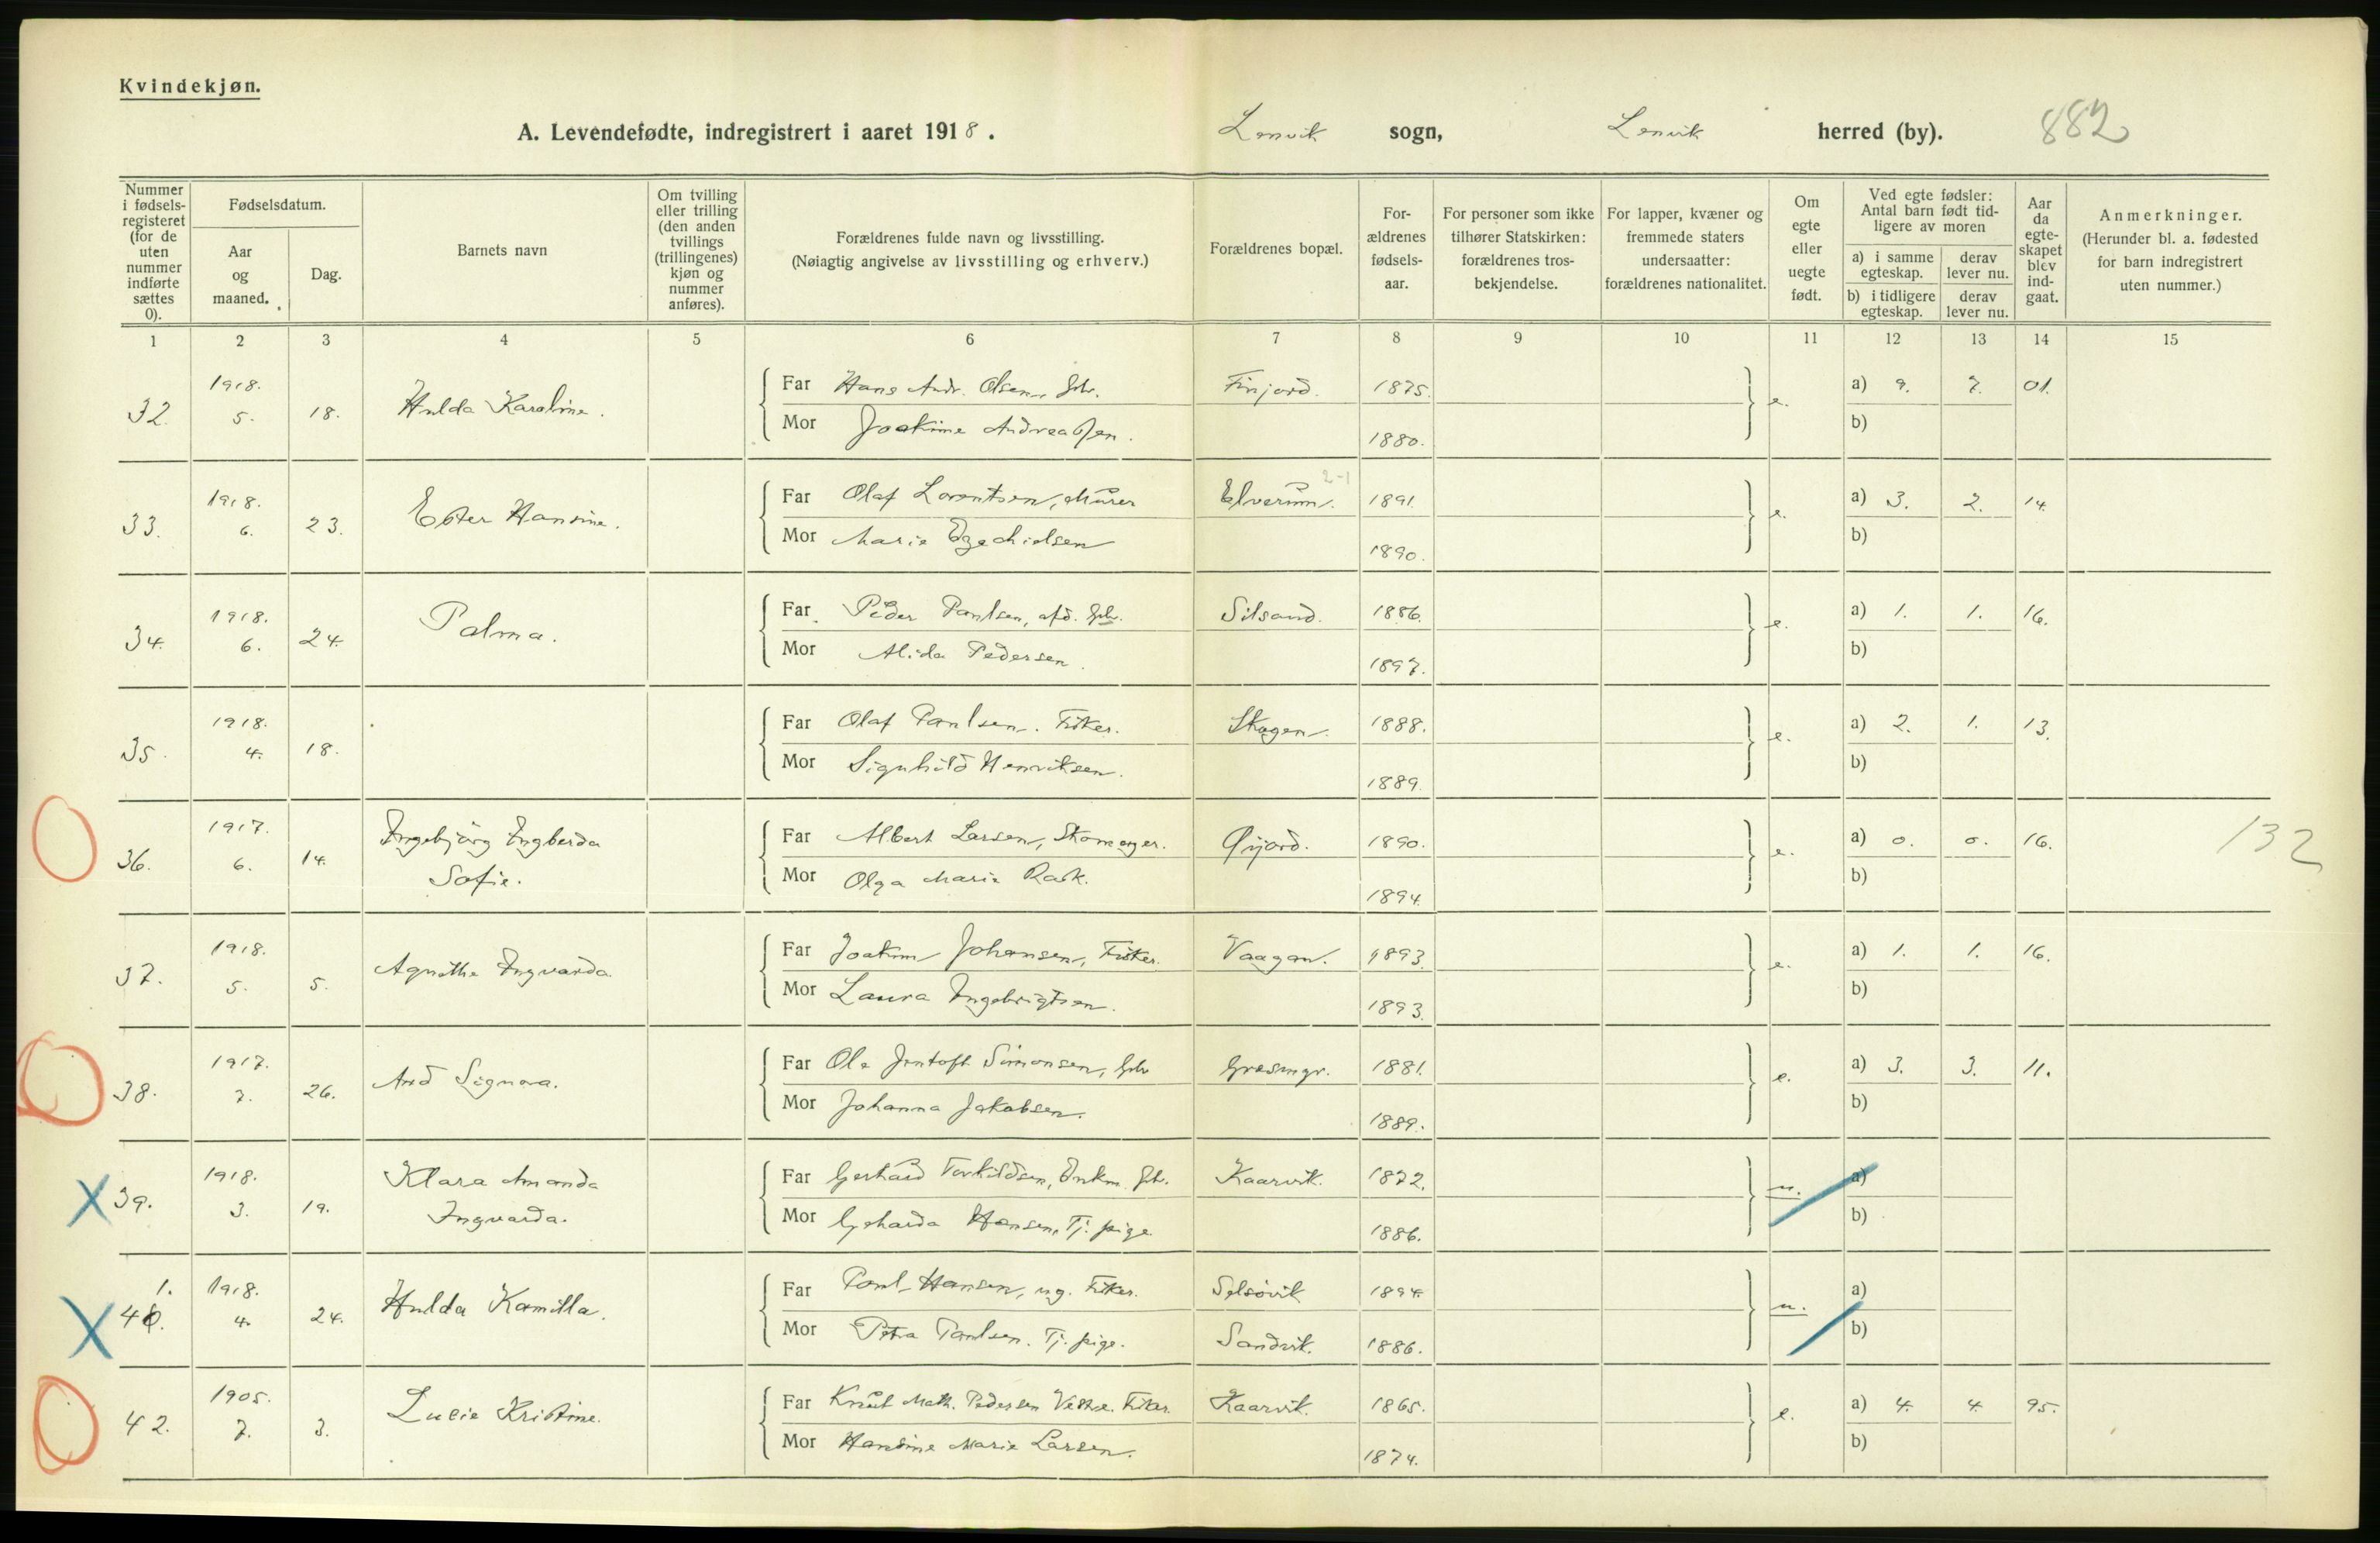 Kvindekjøn.
A. Levendefødte, indregistrert i aaret 1918. Lenvik sogn, Lenvik herred (by). 882
Nummer i fødselsregisteret (for de uten nummer indførte sættes 0).
Fødselsdatum.
Aar og maaned.
Dag.
Barnets navn
Om tvilling eller trilling (den anden tvillings (trillingenes) kjøn og nummer anføres).
Forældrenes fulde navn og livsstilling.
(Nøiagtig angivelse av livsstilling og erhverv.)
Forældrenes bopæl.
Forældrenes fødselsaar.
For personer som ikke tilhører Statskirken: forældrenes trosbekjendelse.
For lapper, kvæner og fremmede staters undersaatter: forældrenes nationalitet.
Om egte eller uegte født.
Ved egte fødsler: Antal barn født tidligere av moren
a) i samme egteskap. derav lever nu.
b) i tidligere egteskap. derav lever nu.
Aar da egteskapet blev indgaat.
Anmerkninger.
(Herunder bl. a. fødested for barn indregistrert uten nummer.)
1 2 3 4 5 6 7 8 9 10 11 12 13 14 15
32. 1918. 5. 18. Hulda Karoline. Far Hans Andr. Olsen, Gbr. Finjord. 1875. e. a) 9. 7. 01.
Mor Joakime Andreassen. 1880. b)
33. 1918. 6. 23. Ester Hansine. Far Olaf Lorentsen, Murer Elverum. 2-1 1891. e. a) 3. 2. 14.
Mor Marie Ezechielsen 1890. b)
34. 1918. 6. 24. Palma. Far Peder Paulsen, Gbr. Silsand. 1886. e. a) 1. 1. 16.
Mor Alida Pedersen. 1897. b)
35. 1918. 4. 18. Far Olaf Paulsen. Fisker. Skogen. 1888. e. a) 2. 1. 13.
Mor Signhild Henriksen. 1889. b)
36. 1917. 6. 14. Ingebjørg Ingberda Sofie. Far Albert Larsen, Skomager. Øijord. 1890. e. a) 0. 0. 16. 132
Mor Olga Marie Rask. 1894. b)
37. 1918. 5. 5. Agnithe Ingvarda. Far Joakim Johansen, Fisker. Vaagan. 1893. e. a) 1. 1. 16.
Mor Laura Ingebrigtsen. 1893. b)
38. 1917. 7. 26. Signora. Far Ole Simonsen, Gbr Græsmyr. 1881. e. a) 3. 3. 11.
Mor Johanna Jakobsen. 1889. b)
39. 1918. 3. 19. Klara Amanda Ingvarda. Far Gerhard Torkildsen, Enkm. Gbr. Kaarvik. 1872. u. a)
Mor Hansen, Tj. pige 1886. b)
41. 1918. 4. 24. Hulda Kamilla. Far Paul Hansen, ug. Fisker. Selsøvik 1894. u. a)
Mor Petra Paulsen. Tj. pige. Sandvik. 1886. b)
42. 1905. 7. 3. Lucie Kristine. Far Knut Math. Pedersen Fisker. Kaarvik. 1865. e. a) 4. 4. 95.
Mor Hansine Marie Larsen. 1874. b)